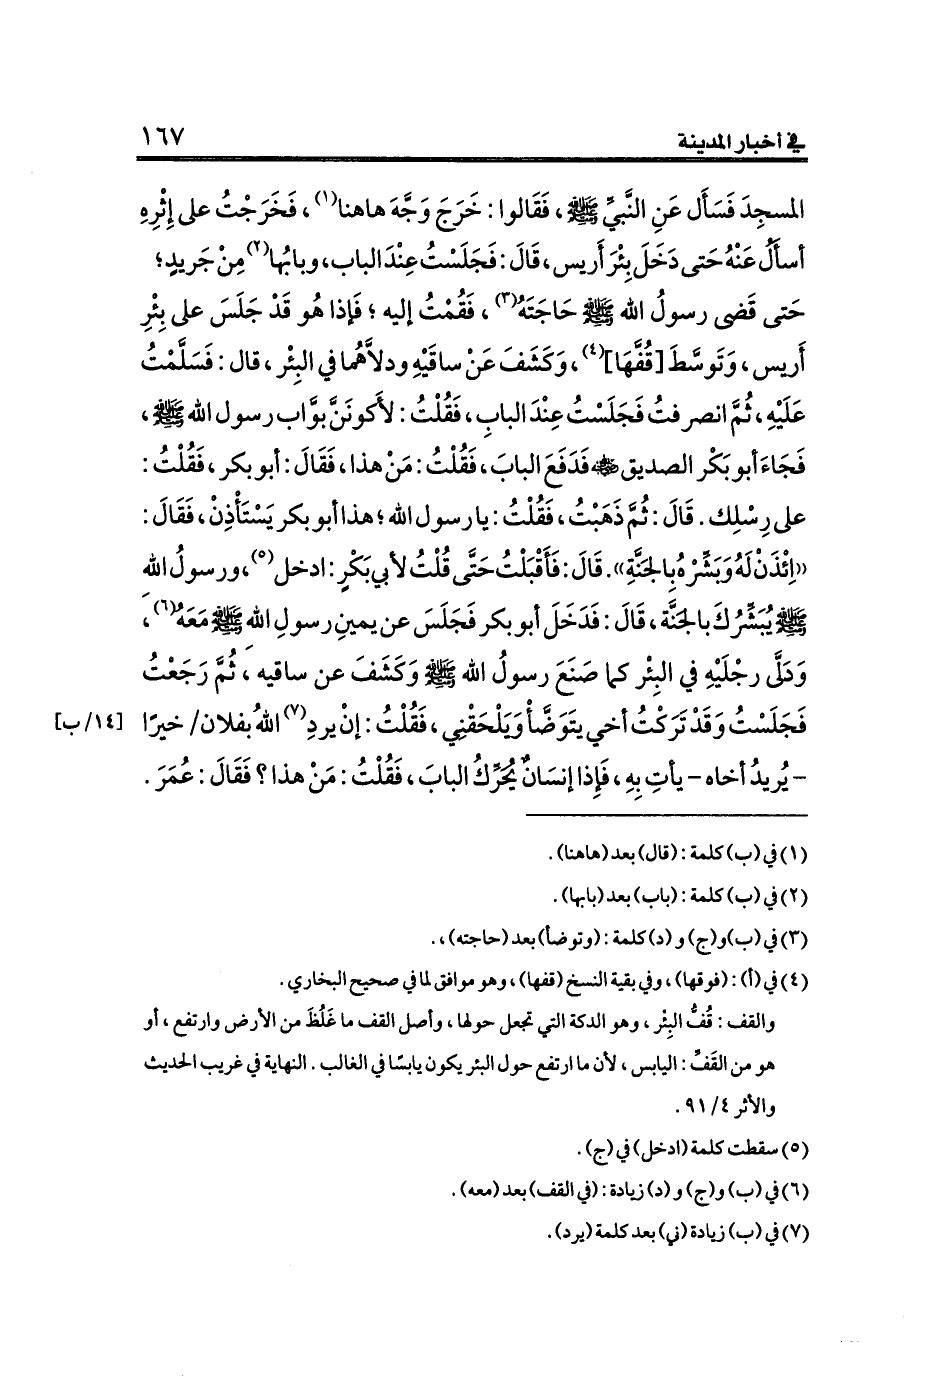 في أخبار المدينة ١٦٧
المسجِدَ فَسَأَل عَنِ النَّبيِّ ﷺ، فَقَالوا: خَرَجَ وَجَّهَ هاهنا(١)، فَخَرَجْتُ على إِثْرِهِ
أسألُ عَنْهُ حَتى دَخَلَ بِئْرَ أَريس، قَالَ: فَجَلَسْتُ عِنْدَ الباب، وبابُها(٢) مِنْ جَريدٍ؛
حَتى قَضى رسولُ الله ﷺ حَاجَتَهُ(٣)، فَقُمْتُ إليه؛ فَإذا هُو قَدْ جَلَسَ على بِئْرِ
أَريس، وَتَوسَّطَ [قُفَّهَا](٤)، وَكَشَفَ عَنْ ساقَيْهِ ودلاَّهُما في البِئْر، قال: فَسَلَّمْتُ
عَلَيْهِ، ثُمَّ انصرفتُ فَجَلَسْتُ عِنْدَ البابِ، فَقُلْتُ: لأَكونَنَّ بوَّاب رسول الله ﷺ،
فَجَاءَ أبو بَكْر الصديق ﷺ فَدَفَعَ البابَ، فَقُلْتُ: مَنْ هذا، فَقَالَ: أبو بكر، فَقُلْتُ:
على رِسْلِك. قَالَ: ثُمَّ ذَهَبْتُ، فَقُلْتُ: يا رسول الله؛ هذا أبو بكر يَسْتَأْذِنْ، فَقَالَ:
«اِئْذَنْ لَهُ وَبَشِّرْهُ بِالجَنَّةِ». قَالَ: فَأَقْبَلْتُ حَتَّى قُلْتُ لأَبي بَكْرٍ: ادخل(٥)، ورسولُ الله
ﷺ يُبَشِّرُكَ بالجَنَّة، قَالَ: فَدَخَلَ أبو بكر فَجَلَسَ عن يمينِ رسولِ الله ﷺ مَعَهُ(٦)،
وَدَلَّى رجْلَيْهِ في البِئْر كما صَنَعَ رسولُ الله ﷺ وَكَشَفَ عن ساقيه، ثُمَّ رَجَعْتُ
فَجَلَسْتُ وَقَدْ تَرَكْتُ أخي يتَوَضَّأ وَيَلْحَقْنِي، فَقُلْتُ: إنْ يردِ(٧) اللهُ بفلان/ خيرًا [١٤/ ب]
- يُريدُ أخاه - يأتِ بِهِ، فَإِذا إنسَانٌ يُحَرِّكُ البابَ، فَقُلْتُ: مَنْ هذا؟ فَقَالَ: عُمَرَ.
(١) في (ب) كلمة: (قال) بعد (هاهنا).
(٢) في (ب) كلمة: (باب) بعد (بابها).
(٣) في (ب) و(ج) و (د) كلمة: (وتوضأ) بعد (حاجته)،.
(٤) في (أ): (فوقها)، وفي بقية النسخ (قفها)، وهو موافق لما في صحيح البخاري.
والقف: قُفُّ البِئْر، وهو الدكة التي تجعل حولها، وأصل القف ما غَلُظَ من الأرض وارتفع، أو
هو من القَفِّ: اليابس، لأن ما ارتفع حول البئر يكون يابسًا في الغالب. النهاية في غريب الحديث
والأثر ٤/ ٩١.
(٥) سقطت كلمة (ادخل) في (ج).
(٦) في (ب) و(ج) و (د) زيادة: (في القف) بعد (معه).
(٧) في (ب) زيادة (ني) بعد كلمة (يرد).